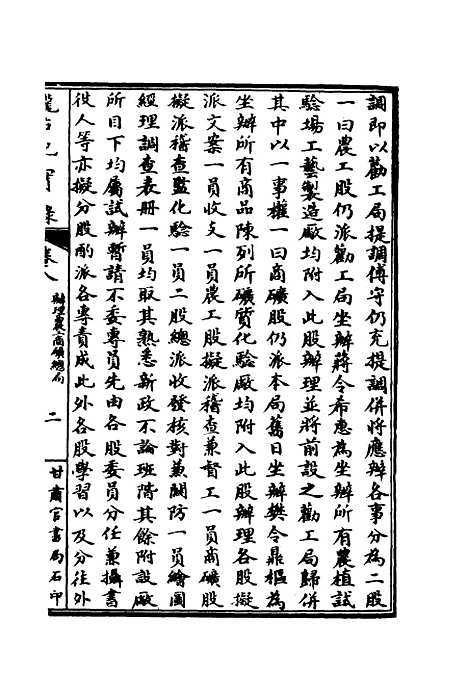 調即以勸工局提調傅守仍充提調併將應辦各事分為二股
一曰農工股仍派勸工局坐辦蔣令希惠為坐辦所有農植試
驗場工藝製造廠均附入此股辦理並將前設之勸工局歸併
其中以一事權一曰商礦股仍派本局舊日坐辦樊令鼎樞為
坐辦所有商品陳列所礦質化驗廠均附入此股辦理各股擬
派文案一員收支一員農工股擬派稽查兼督工一員商礦股
擬派稽查監化驗一員二股總派收發核對兼關防一員繪圖
經理調查表冊一員均取其熟悉新政不論班階其餘附設廠
所目下均屬試辦暫請不委專員先由各股委員分任兼攝書
役人等亦擬分股酌派各專責成此外各股學習以及分往外
隴右紀實錄 卷八 辦理農工商礦總局 二 甘肅官書局石印